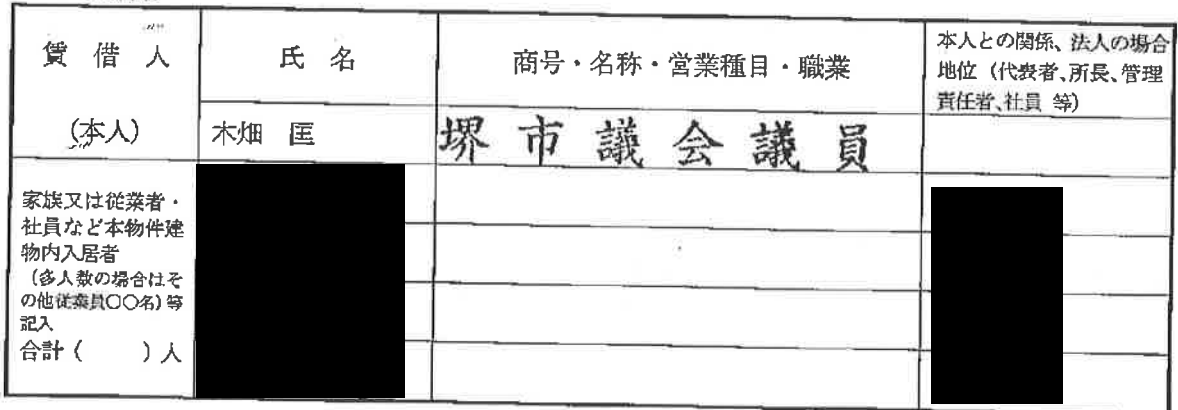 賃借人
(本人)
氏名
商号・名称・営業種目・職業
本人との関係、法人の場合
地位（代表者、所長、管理
責任者、社員 等）
木畑 匡
堺市議会議員
家族又は従業者・
社員など本物件建
物内入居者
（多人数の場合はそ
の他従業員〇〇名）等
記入
合計（　　）人